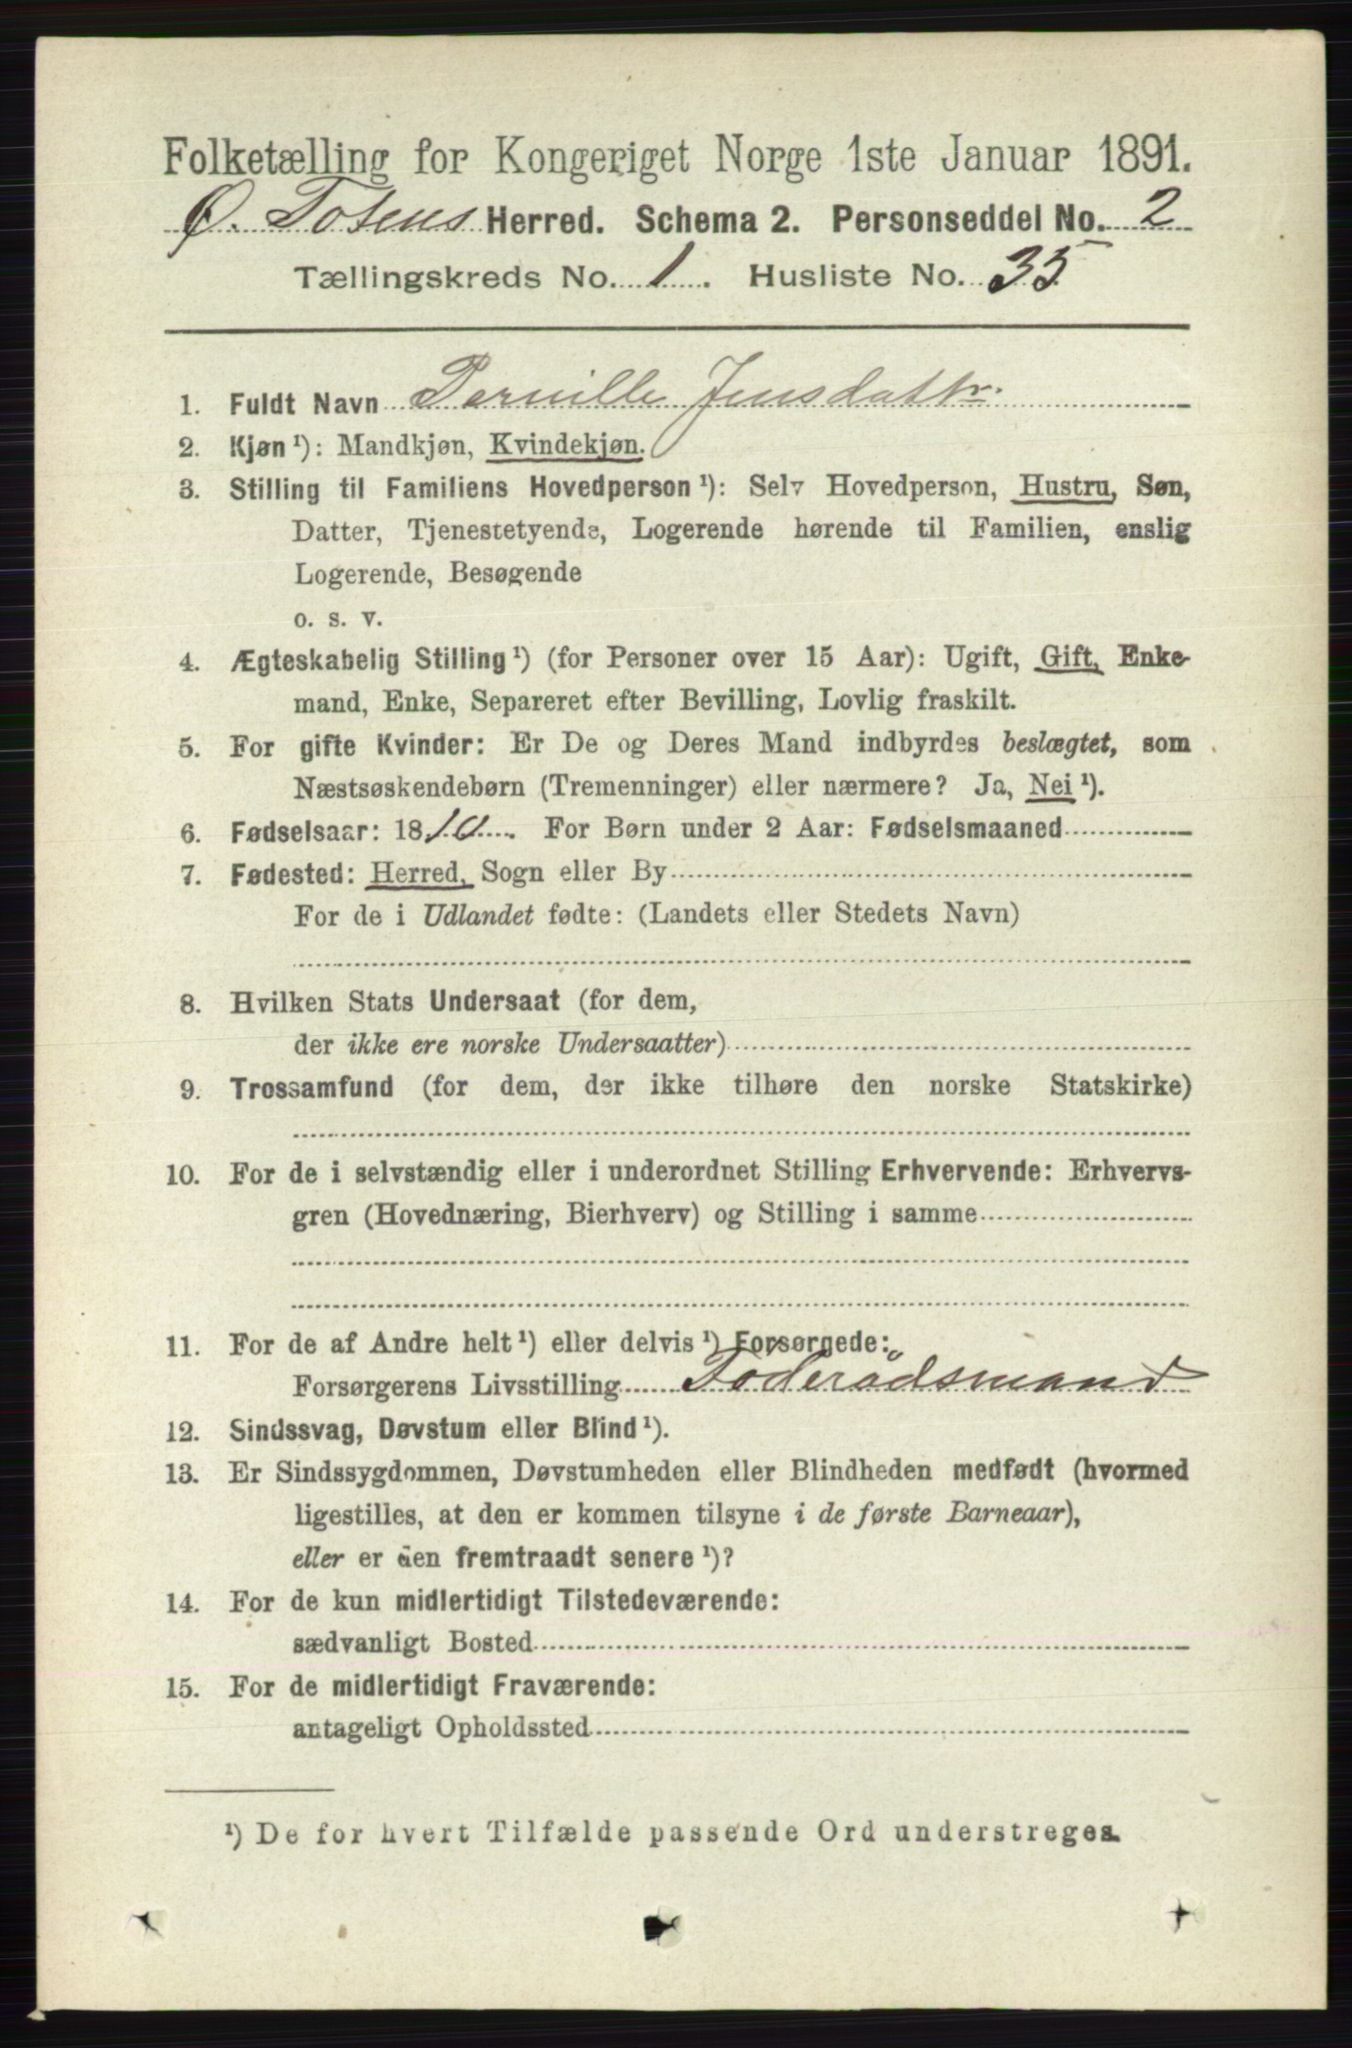 Folketælling for Kongeriget Norge 1ste Januar 1891.
Ø. Totens Herred. Schema 2. Personseddel No. 2
Tællingskreds No. 1. Husliste No. 35
1. Fuldt Navn Pernille Jensdattr.
2. Kjøn ¹): Mandkjøn, Kvindekjøn.
3. Stilling til Familiens Hovedperson ¹): Selv Hovedperson, Hustru, Søn,
Datter, Tjenestetyende, Logerende hørende til Familien, enslig
Logerende, Besøgende
o. s. v.
4. Ægteskabelig Stilling ¹) (for Personer over 15 Aar): Ugift, Gift, Enke-
mand, Enke, Separeret efter Bevilling, Lovlig fraskilt.
5. For gifte Kvinder: Er De og Deres Mand indbyrdes beslægtet, som
Næstsøskendebørn (Tremenninger) eller nærmere? Ja, Nei ¹).
6. Fødselsaar: 1810. For Børn under 2 Aar: Fødselsmaaned
7. Fødested: Herred, Sogn eller By
For de i Udlandet fødte: (Landets eller Stedets Navn)
8. Hvilken Stats Undersaat (for dem,
der ikke ere norske Undersaatter)
9. Trossamfund (for dem, der ikke tilhøre den norske Statskirke)
10. For de i selvstændig eller i underordnet Stilling Erhvervende: Erhvervs-
gren (Hovednæring, Bierhverv) og Stilling i samme
11. For de af Andre helt ¹) eller delvis ¹) Forsørgede:
Forsørgerens Livsstilling Föderådsmand
12. Sindssvag, Døvstum eller Blind ¹).
13. Er Sindssygdommen, Døvstumheden eller Blindheden medfødt (hvormed
ligestilles, at den er kommen tilsyne i de første Barneaar),
eller er den fremtraadt senere ¹)?
14. For de kun midlertidigt Tilstedeværende:
sædvanligt Bosted
15. For de midlertidigt Fraværende:
antageligt Opholdssted
¹) De for hvert Tilfælde passende Ord understreges.